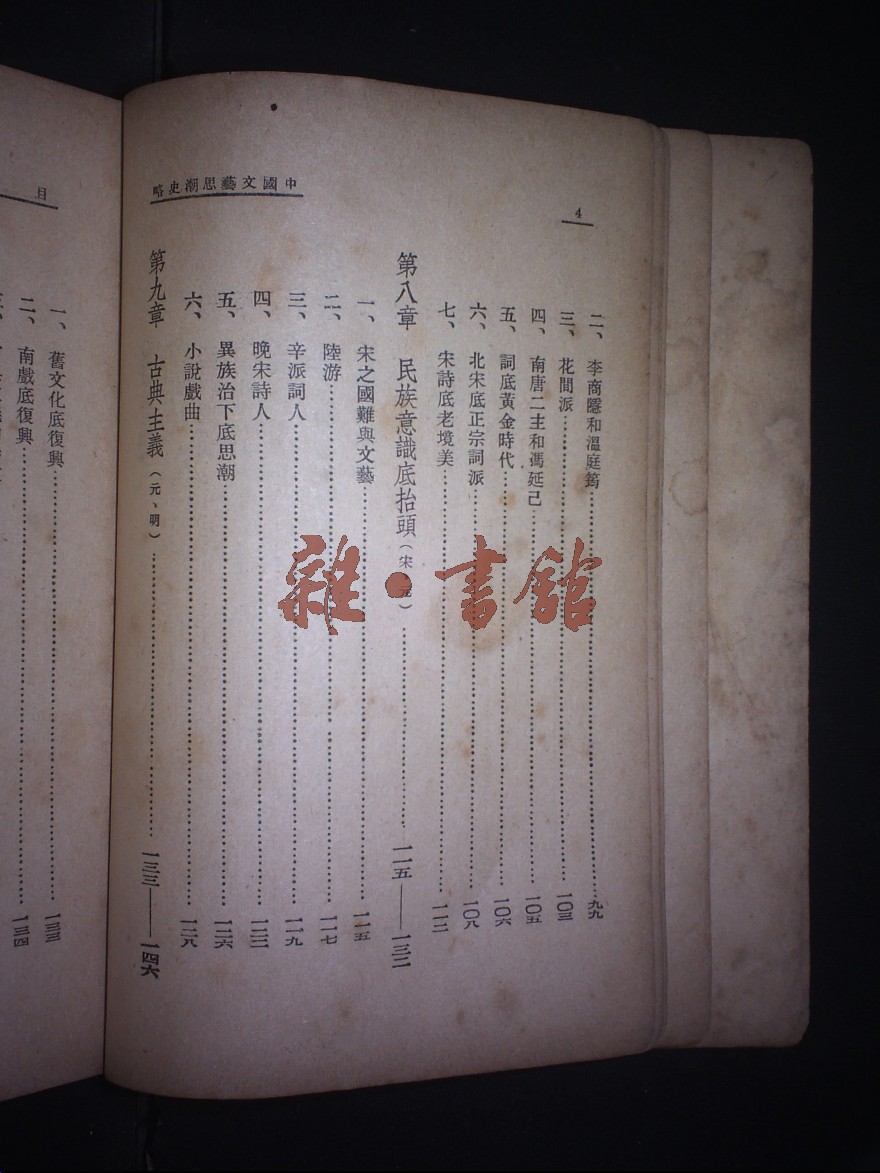 中國文藝思潮史略
4
二、李商隱和溫庭筠……九九
三、花間派……一〇三
四、南唐二主和馮延己……一〇五
五、詞底黃金時代……一〇六
六、北宋底正宗詞派……一〇八
七、宋詩底老境美……一一二
第八章 民族意識底抬頭(宋、元)……一一五——一三二
一、宋之國難與文藝……一一五
二、陸游……一一七
三、辛派詞人……一一九
四、晚宋詩人……一二三
五、異族治下底思潮……一二六
六、小說戲曲……一二八
第九章 古典主義(元、明)……一三三——一四六
目
一、舊文化底復興……一三三
二、南戲底復興……一三四
三、
雜·書館